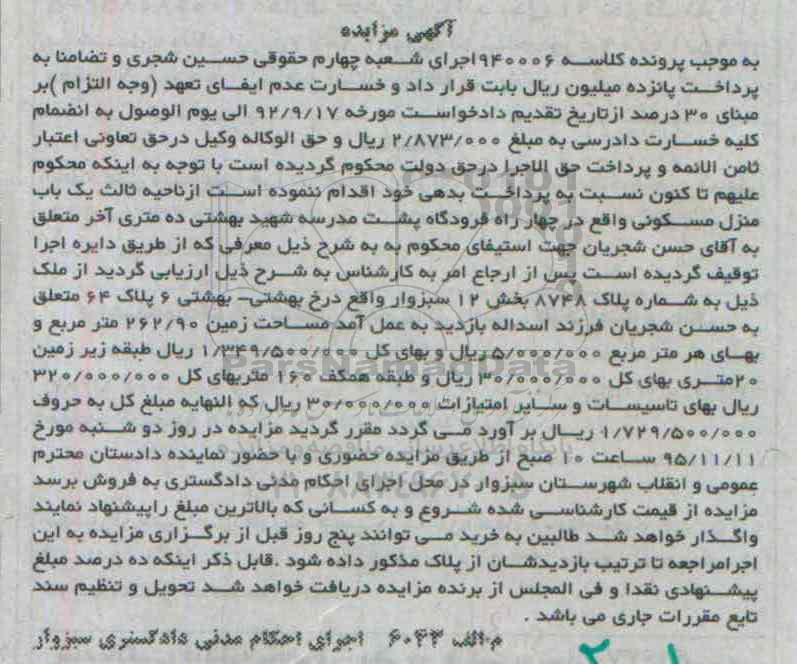 آگهی مزایده
به موجب پرونده کلاسه ۹۴۰۰۰۶ اجرای شعبه چهارم حقوقی حسین شجری و تضامنا به
پرداخت پانزده میلیون ریال بابت قرار داد و خسارت عدم ایفای تعهد (وجه التزام )بر
مبنای ۳۰ درصد ازتاریخ تقدیم دادخواست مورخه ۹۲/۹/۱۷ الی یوم الوصول به انضمام
کلیه خسارت دادرسی به مبلغ ۲/۸۷۳/۰۰۰ ریال و حق الوکاله وکیل درحق تعاونی اعتبار
ثامن الائمه و پرداخت حق الاجرا درحق دولت محکوم گردیده است با توجه به اینکه محکوم
علیهم تا کنون نسبت به پرداخت بدهی خود اقدام ننموده است ازناحیه ثالث یک باب
منزل مسکونی واقع در چهار راه فرودگاه پشت مدرسه شهید بهشتی ده متری آخر متعلق
به آقای حسن شجریان جهت استیفای محکوم به به شرح ذیل معرفی که از طریق دایره اجرا
توقیف گردیده است پس از ارجاع امر به کارشناس به شرح ذیل ارزیابی گردید از ملک
ذیل به شماره پلاک ۸۷۴۸ بخش ۱۲ سبزوار واقع درخ بهشتی- بهشتی ۶ پلاک ۶۴ متعلق
به حسن شجریان فرزند اسداله بازدید به عمل آمد مساحت زمین ۲۶۲/۹۰ متر مربع و
بهای هر متر مربع ۵/۰۰۰/۰۰۰ ریال و بهای کل ۱/۳۴۹/۵۰۰/۰۰۰ ریال طبقه زیر زمین
۲۰متری بهای کل ۳۰/۰۰۰/۰۰۰ ریال و طبقه همکف ۱۶۰ متربهای کل ۳۲۰/۰۰۰/۰۰۰
ریال بهای تاسیسات و سایر امتیازات ۳۰/۰۰۰/۰۰۰ ریال که النهایه مبلغ کل به حروف
۱/۷۲۹/۵۰۰/۰۰۰ ریال بر آورد می گردد مقرر گردید مزایده در روز دو شنبه مورخ
۹۵/۱۱/۱۱ ساعت ۱۰ صبح از طریق مزایده حضوری و با حضور نماینده دادستان محترم
عمومی و انقلاب شهرستان سبزوار در محل اجرای احکام مدنی دادگستری به فروش برسد
مزایده از قیمت کارشناسی شده شروع و به کسانی که بالاترین مبلغ راپیشنهاد نمایند
واگذار خواهد شد طالبین به خرید می توانند پنج روز قبل از برگزاری مزایده به این
اجرامراجعه تا ترتیب بازدیدشان از پلاک مذکور داده شود .قابل ذکر اینکه ده درصد مبلغ
پیشنهادی نقدا و فی المجلس از برنده مزایده دریافت خواهد شد تحویل و تنظیم سند
تابع مقررات جاری می باشد .
م-الف ۶۰۳۳ اجرای احکام مدنی دادگستری سبزوار
ParsNamadData